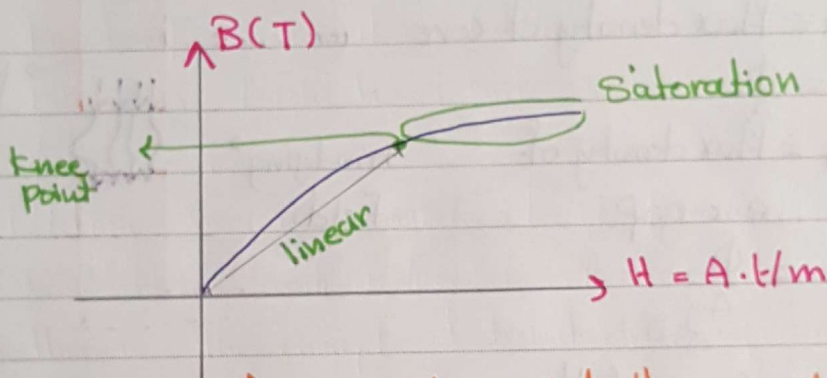 B(T)
Satoration
Knee
Point
linear
H = A.t/m